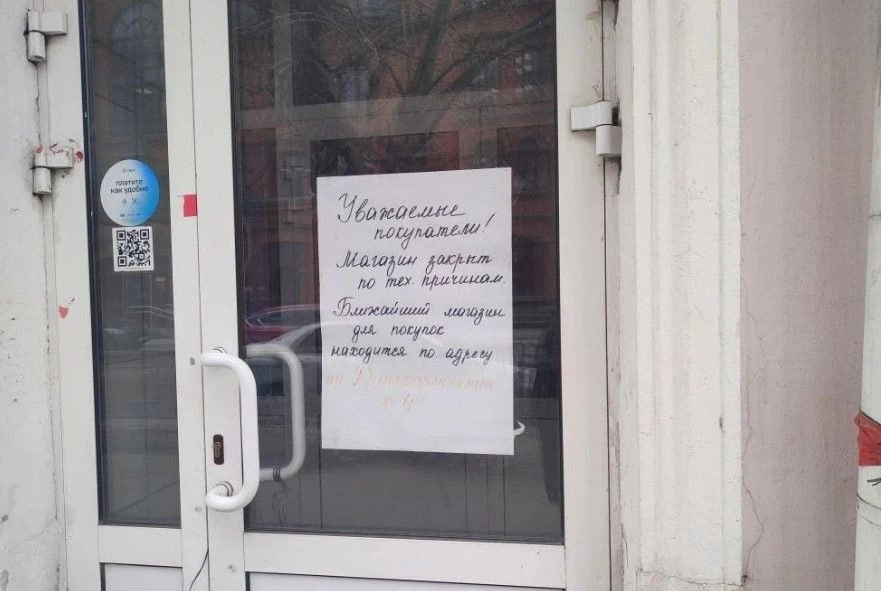 платите
как удобно
Уважаемые
покупатели!
Магазин закрыт
по тех. причинам.
Ближайший магазин
для покупок
находится по адресу
пр.